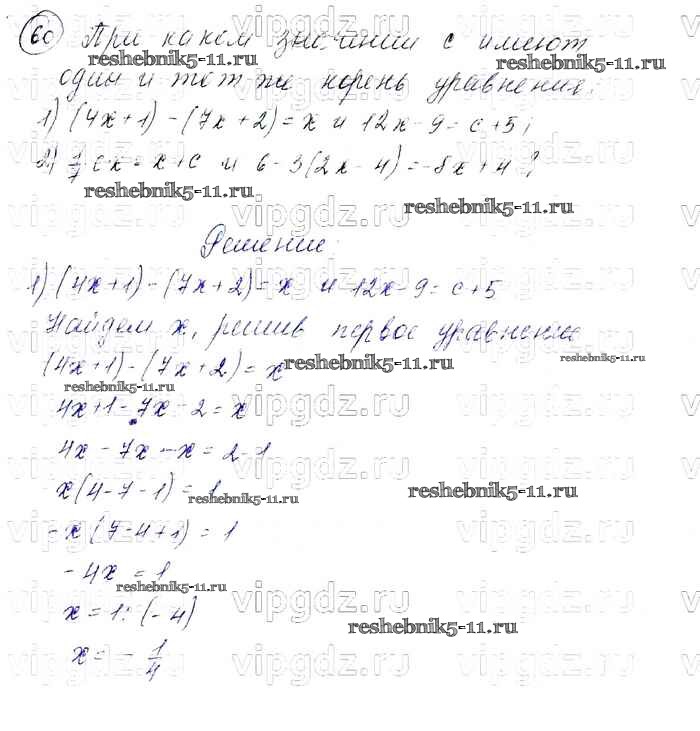 60 При каком значении c имеют
reshebnik5-11.ru
один и тот же корень уравнения:
reshebnik5-11.ru
1) (4x+1)-(7x+2)=x и 12x-9=c+5;
2) 1/7 cx=x+c и 6-3(2x-4)=-8x+4?
reshebnik5-11.ru
reshebnik5-11.ru
Решение:
1) (4x+1)-(7x+2)=x и 12x-9=c+5
Найдем x, решив первое уравнение
(4x+1)-(7x+2)=x
reshebnik5-11.ru
reshebnik5-11.ru
reshebnik5-11.ru
4x+1-7x-2=x
4x-7x-x=2-1
x(4-7-1)=1
reshebnik5-11.ru
reshebnik5-11.ru
-x(7-4+1)=1
-4x=1
reshebnik5-11.ru
x=1:(-4)
reshebnik5-11.ru
x=-1/4
vipgdz.ru